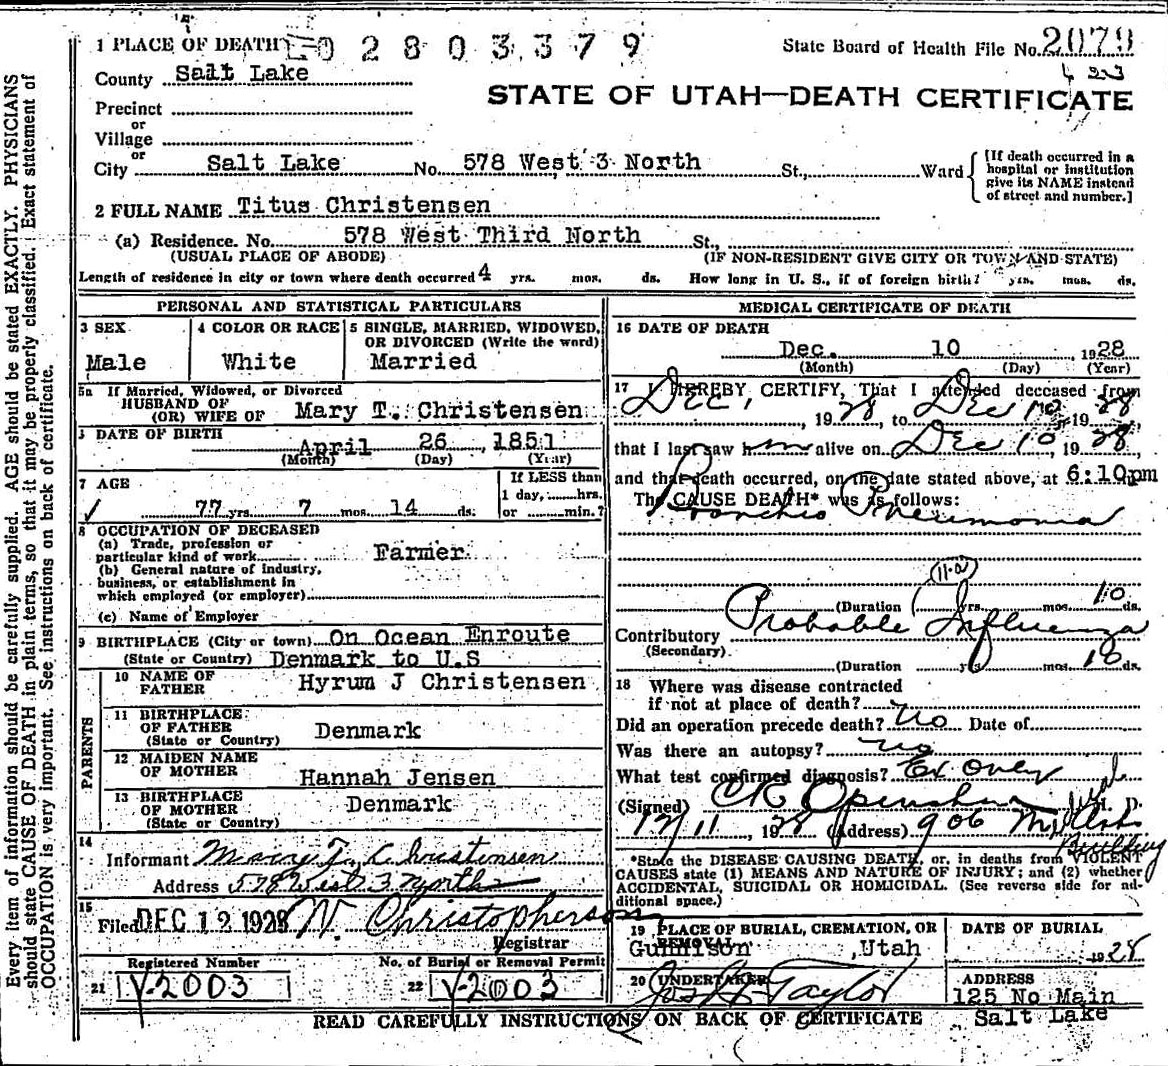 1 PLACE OF DEATH
02803379
State Board of Health File No. 2079
County Salt Lake
STATE OF UTAH—DEATH CERTIFICATE
Precinct
or
Village
or
City Salt Lake No. 578 West 3 North St., Ward
[If death occurred in a
hospital or institution
give its NAME instead
of street and number.]
2 FULL NAME Titus Christensen
(a) Residence. No. 578 West Third North St.,
(USUAL PLACE OF ABODE) (IF NON-RESIDENT GIVE CITY OR TOWN AND STATE)
Length of residence in city or town where death occurred 4 yrs. mos. ds. How long in U. S., if of foreign birth? yrs. mos. ds.
PERSONAL AND STATISTICAL PARTICULARS
3 SEX
Male
4 COLOR OR RACE
White
5 SINGLE, MARRIED, WIDOWED,
OR DIVORCED (Write the word)
Married
5a If Married, Widowed, or Divorced
HUSBAND OF
(OR) WIFE OF Mary T. Christensen
DATE OF BIRTH
April 26, 1851
(Month) (Day) (Year)
7 AGE
77 yrs. 7 mos. 14 ds.
If LESS than
1 day, hrs.
or min.?
8 OCCUPATION OF DECEASED
(a) Trade, profession or
particular kind of work Farmer
(b) General nature of industry,
business, or establishment in
which employed (or employer)
(c) Name of Employer
9 BIRTHPLACE (City or town) On Ocean Enroute
(State or Country) Denmark to U.S
PARENTS
10 NAME OF
FATHER Hyrum J Christensen
11 BIRTHPLACE
OF FATHER Denmark
(State or Country)
12 MAIDEN NAME
OF MOTHER Hannah Jensen
13 BIRTHPLACE
OF MOTHER Denmark
(State or Country)
14
Informant Mary T. Christensen
Address 578 West 3 North
15
Filed DEC 12 1928 W. Christopherson
Registrar
Registered Number
21 Y-2003
No. of Burial or Removal Permit
22 Y-2003
MEDICAL CERTIFICATE OF DEATH
16 DATE OF DEATH
Dec. 10, 1928
(Month) (Day) (Year)
17 I HEREBY CERTIFY, That I attended deceased from
Dec, 1928, to Dec 10, 1928,
that I last saw him alive on Dec 10, 1928,
and that death occurred, on the date stated above, at 6:10pm
The CAUSE DEATH* was as follows:
Broncho Pneumonia
11-a
(Duration yrs. mos. 10 ds.
Contributory Probable Influenza
(Secondary)
(Duration yrs. mos. 10 ds.
18 Where was disease contracted
if not at place of death?
Did an operation precede death? No Date of
Was there an autopsy? no
What test confirmed diagnosis? Ex only
(Signed) CR Openshaw M. D.
12/11, 1928 (Address) 906
Building
*State the DISEASE CAUSING DEATH, or, in deaths from VIOLENT
CAUSES state (1) MEANS AND NATURE OF INJURY; and (2) whether
ACCIDENTAL, SUICIDAL OR HOMICIDAL. (See reverse side for ad-
ditional space.)
19 PLACE OF BURIAL, CREMATION, OR
REMOVAL
Gunnison, Utah
DATE OF BURIAL
1928
20 UNDERTAKER
Jos. Taylor
ADDRESS
125 No Main
Salt Lake
READ CAREFULLY INSTRUCTIONS ON BACK OF CERTIFICATE
Every item of information should be carefully supplied. AGE should be stated EXACTLY. PHYSICIANS
should state CAUSE OF DEATH in plain terms, so that it may be properly classified. Exact statement of
OCCUPATION is very important. See instructions on back of certificate.